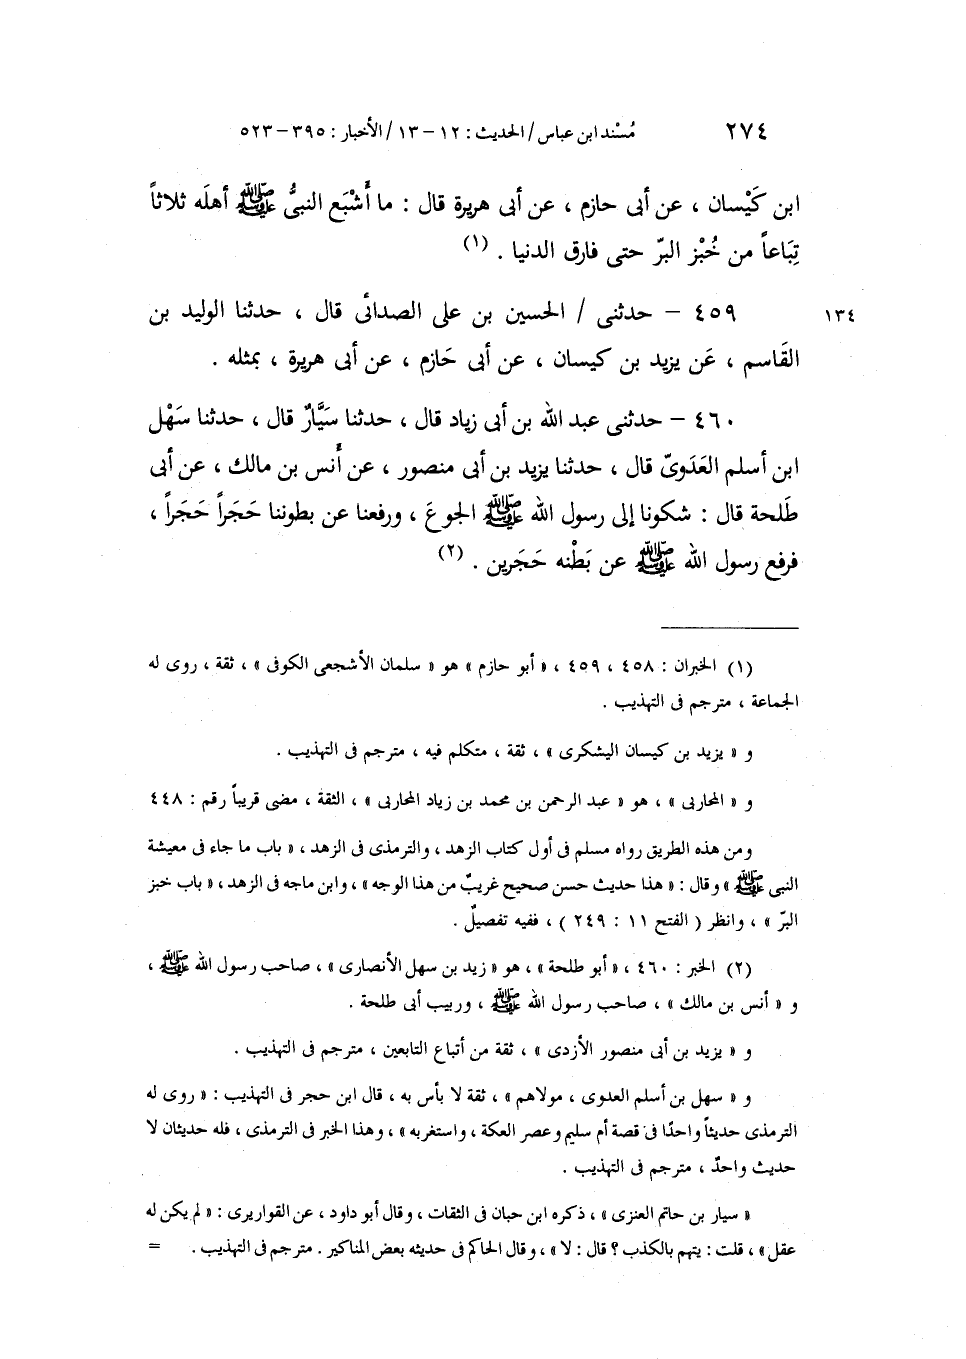 ٢٧٤ مُسْند ابن عباس / الحديث : ١٢ – ١٣ / الأخبار : ٣٩٥ – ٥٢٣
ابن كَيْسان ، عن أبى حازم ، عن أبى هريرة قال : ما أَشْبَع النبىُّ ﷺ أهلَه ثلاثاً
تِبَاعاً من خُبْز البرّ حتى فارق الدنيا . (١)
٤٥٩ – حدثنى / الحسين بن على الصدائى قال ، حدثنا الوليد بن ١٣٤
القَاسم ، عَن يزيد بن كيسان ، عن أبى حَازم ، عن أبى هريرة ، بمثله .
٤٦٠ – حدثنى عبد الله بن أبى زياد قال ، حدثنا سَيَّارٌ قال ، حدثنا سَهْل
ابن أسلم العَدَوىّ قال ، حدثنا يزيد بن أبى منصور ، عن أَنس بن مالك ، عن أبى
طَلحة قال : شكونا إلى رسول الله ﷺ الجوعَ ، ورفعنا عن بطوننا حَجَراً حَجَراً ،
فرفع رسول الله ﷺ عن بَطْنه حَجَرين . (٢)
(١) الخبران : ٤٥٨ ، ٤٥٩ ، « أبو حازم » هو « سلمان الأشجعى الكوفى » ، ثقة ، روى له
الجماعة ، مترجم فى التهذيب .
و « يزيد بن كيسان اليشكرى » ، ثقة ، متكلم فيه ، مترجم فى التهذيب .
و « المحاربى » ، هو « عبد الرحمن بن محمد بن زياد المحاربى » ، الثقة ، مضى قريباً رقم : ٤٤٨
ومن هذه الطريق رواه مسلم فى أول كتاب الزهد ، والترمذى فى الزهد ، « باب ما جاء فى معيشة
النبى ﷺ » وقال : « هذا حديث حسن صحيح غريبٌ من هذا الوجه » ، وابن ماجه فى الزهد ، « باب خبز
البرّ » ، وانظر ( الفتح ١١ : ٢٤٩ ) ، ففيه تفصيلٌ .
(٢) الخبر : ٤٦٠ ، « أبو طلحة » ، هو « زيد بن سهل الأنصارى » ، صاحب رسول الله ﷺ ،
و « أنس بن مالك » ، صاحب رسول الله ﷺ ، وربيب أبى طلحة .
و « يزيد بن أبى منصور الأزدى » ، ثقة من أتباع التابعين ، مترجم فى التهذيب .
و « سهل بن أسلم العدوى ، مولاهم » ، ثقة لا بأس به ، قال ابن حجر فى التهذيب : « روى له
الترمذى حديثاً واحدًا فى قصة أم سليم وعصر العكة ، واستغربه » ، وهذا الخبر فى الترمذى ، فله حديثان لا
حديث واحدٌ ، مترجم فى التهذيب .
« سيار بن حاتم العنزى » ، ذكره ابن حبان فى الثقات ، وقال أبو داود ، عن القواريرى : « لم يكن له
عقل » ، قلت : يتهم بالكذب ؟ قال : لا » ، وقال الحاكم فى حديثه بعض المناكير . مترجم فى التهذيب . =